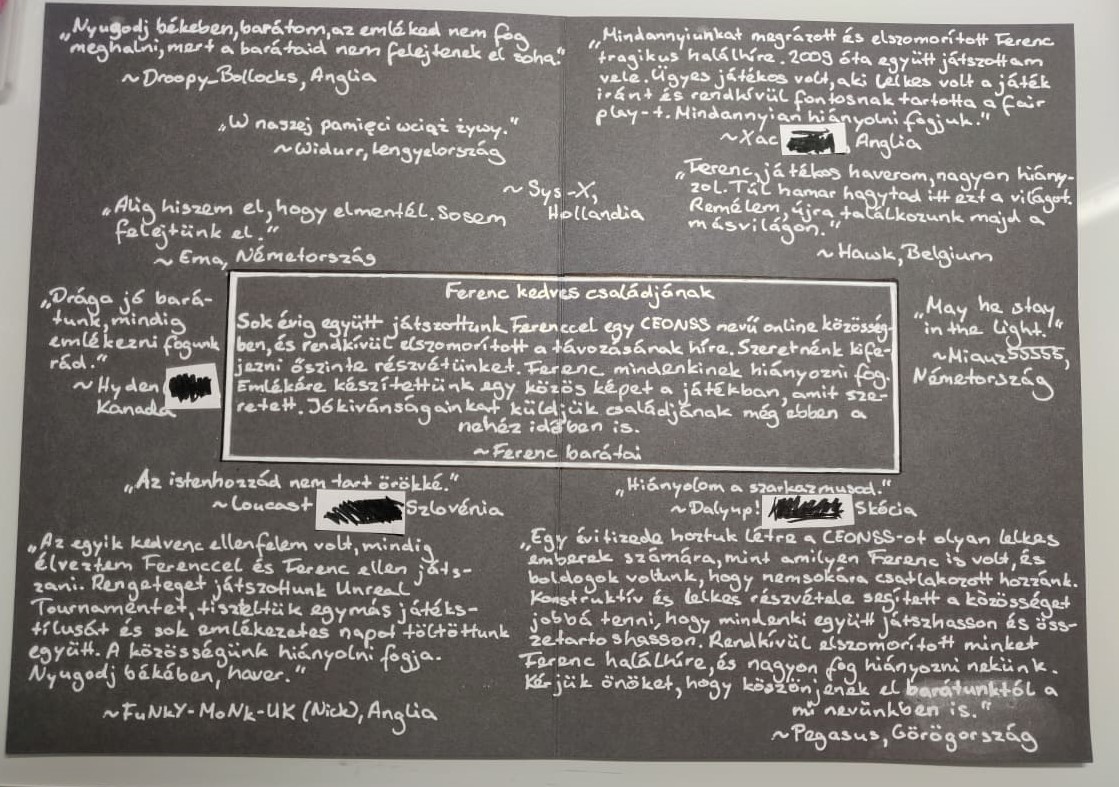 „Nyugodj békében, barátom, az emléked nem fog
meghalni, mert a barátaid nem felejtenek el soha."
~Droopy_Bollocks, Anglia
„W naszej pamięci wciąż żywy."
~Widurr, Lengyelország
~ Sys-X,
Hollandia
„Alig hiszem el, hogy elmentél. Sosem
felejtünk el."
~ Ema, Németország
„Mindannyiunkat megrázott és elszomorított Ferenc
tragikus halálhíre. 2009 óta együtt játszottam
vele. Ügyes játékos volt, aki lelkes volt a játék
iránt és rendkívül fontosnak tartotta a fair
play-t. Mindannyian hiányolni fogjuk."
~Xac Anglia
„Ferenc, játékos haverom, nagyon hiány-
zol. Túl hamar hagytad itt ezt a világot.
Remélem, újra találkozunk majd a
másvilágon."
~ Hawk, Belgium
„Drága jó bará-
tunk, mindig
emlékezni fogunk
rád."
~ Hyden
Kanada
Ferenc kedves családjának
Sok évig együtt játszottunk Ferenccel egy CEONSS nevű online közösség-
ben, és rendkívül elszomorított a távozásának híre. Szeretnénk kife-
jezni őszinte részvétünket. Ferenc mindenkinek hiányozni fog.
Emlékére készítettünk egy közös képet a játékban, amit sze-
retett. Jókívánságainkat küldjük családjának még ebben a
nehéz időben is.
~Ferenc barátai
„May he stay
in the light."
~Miauz55555,
Németország
„Az istenhozzád nem tart örökké."
~Loucast Szlovénia
„Az egyik kedvenc ellenfelem volt, mindig
élveztem Ferenccel és Ferenc ellen játs-
zani. Rengeteget játszottunk Unreal
Tournamentet, tiszteltük egymás játéks-
tílusát és sok emlékezetes napot töltöttunk
együtt. A közösségünk hiányolni fogja.
Nyugodj békában, haver."
~FuNkY-MoNk-UK (Nick), Anglia
„Hiányolom a szarkazmusod."
~Dalyup! Skócia
„Egy évitizede hoztuk létre a CEONSS-ot olyan lelkes
emberek számára, mint amilyen Ferenc is volt, és
boldogok voltunk, hogy nemsokára csatlakozott hozzánk.
Konstruktív és lelkes részvétele segített a közösséget
jobbá tenni, hogy mindenki együtt játszhasson és öss-
zetartoshasson. Rendkívül elszomorított minket
Ferenc halálhíre, és nagyon fog hiányozni nekünk.
Kérjük önöket, hogy köszönjenek el barátunktól a
mi nevünkben is."
~Pegasus, Görögország